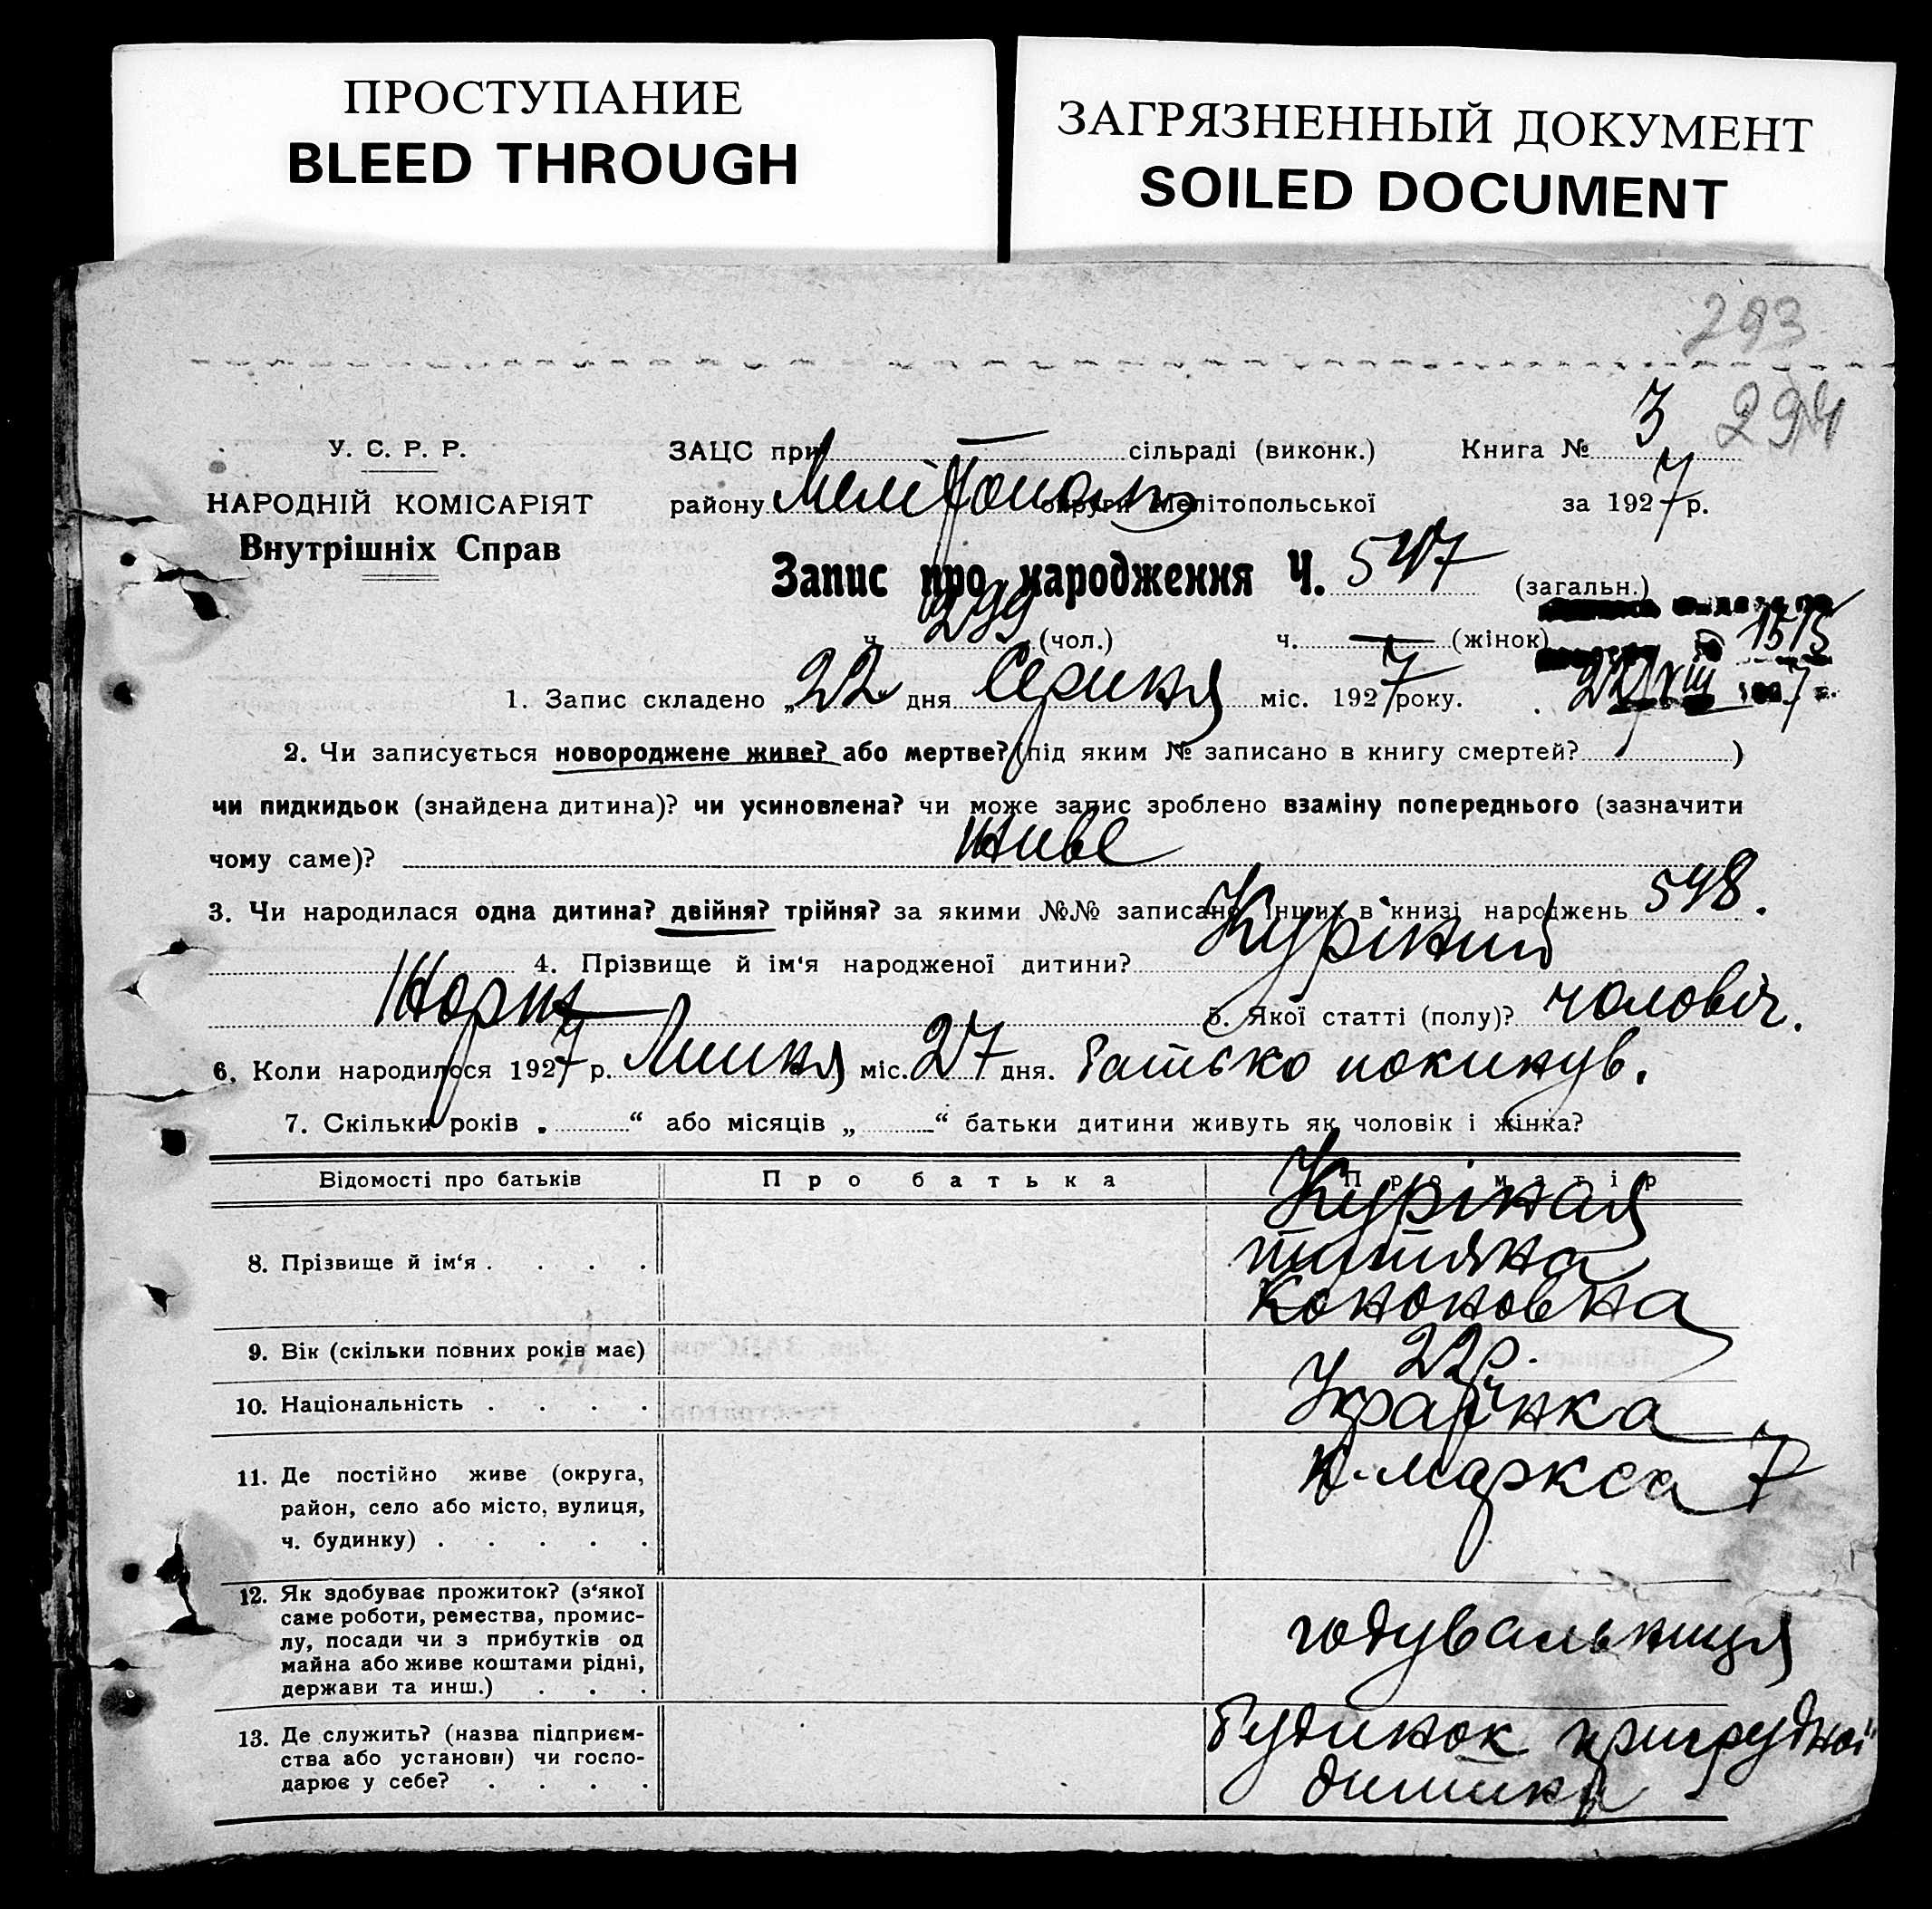 ПРОСТУПАНИЕ
BLEED THROUGH
ЗАГРЯЗНЕННЫЙ ДОКУМЕНТ
SOILED DOCUMENT
293
294
У. С. Р. Р.
НАРОДНІЙ КОМІСАРІЯТ
Внутрішніх Справ
ЗАЦС при — сільраді (виконк.) Книга № 3
району округи Мелітопольської за 1927 р.
Запис про народження Ч. 547 (загальн.)
ч. 299 (чол.) ч. — (жінок)
1515
1. Запис складено „22 дня Серпня міс. 1927 року.
2. Чи записується новороджене живе? або мертве? (під яким № записано в книгу смертей? )
чи пидкидьок (знайдена дитина)? чи усиновлена? чи може запис зроблено взаміну попереднього (зазначити
чому саме)? живе
3. Чи народилася одна дитина? двійня? трійня? за якими №№ записано інших в книзі народжень 548.
4. Прізвище й ім'я народженої дитини? Курінний
5. Якої статті (полу)? чоловіч.
6. Коли народилося 1927 р. Липня міс. 27 дня. батько покинув.
7. Скільки років „ “ або місяців „ “ батьки дитини живуть як чоловік і жінка?
Відомості про батьків Про батька Про матір
8. Прізвище й ім'я . . . .
Куріная
Титяна
Кононовна
9. Вік (скільки повних років має) 22 р.
10. Національність . . . . Українка
11. Де постійно живе (округа,
район, село або місто, вулиця,
ч. будинку) . . . . .
К. Маркса 7
12. Як здобуває прожиток? (з'якої
саме роботи, ремества, промис-
лу, посади чи з прибутків од
майна або живе коштами рідні,
держави та инш.) . . .
годувальниця
13. Де служить? (назва підприєм-
ства або установи) чи госпо-
дарює у себе? . . . .
будинок пригрудної
дитини